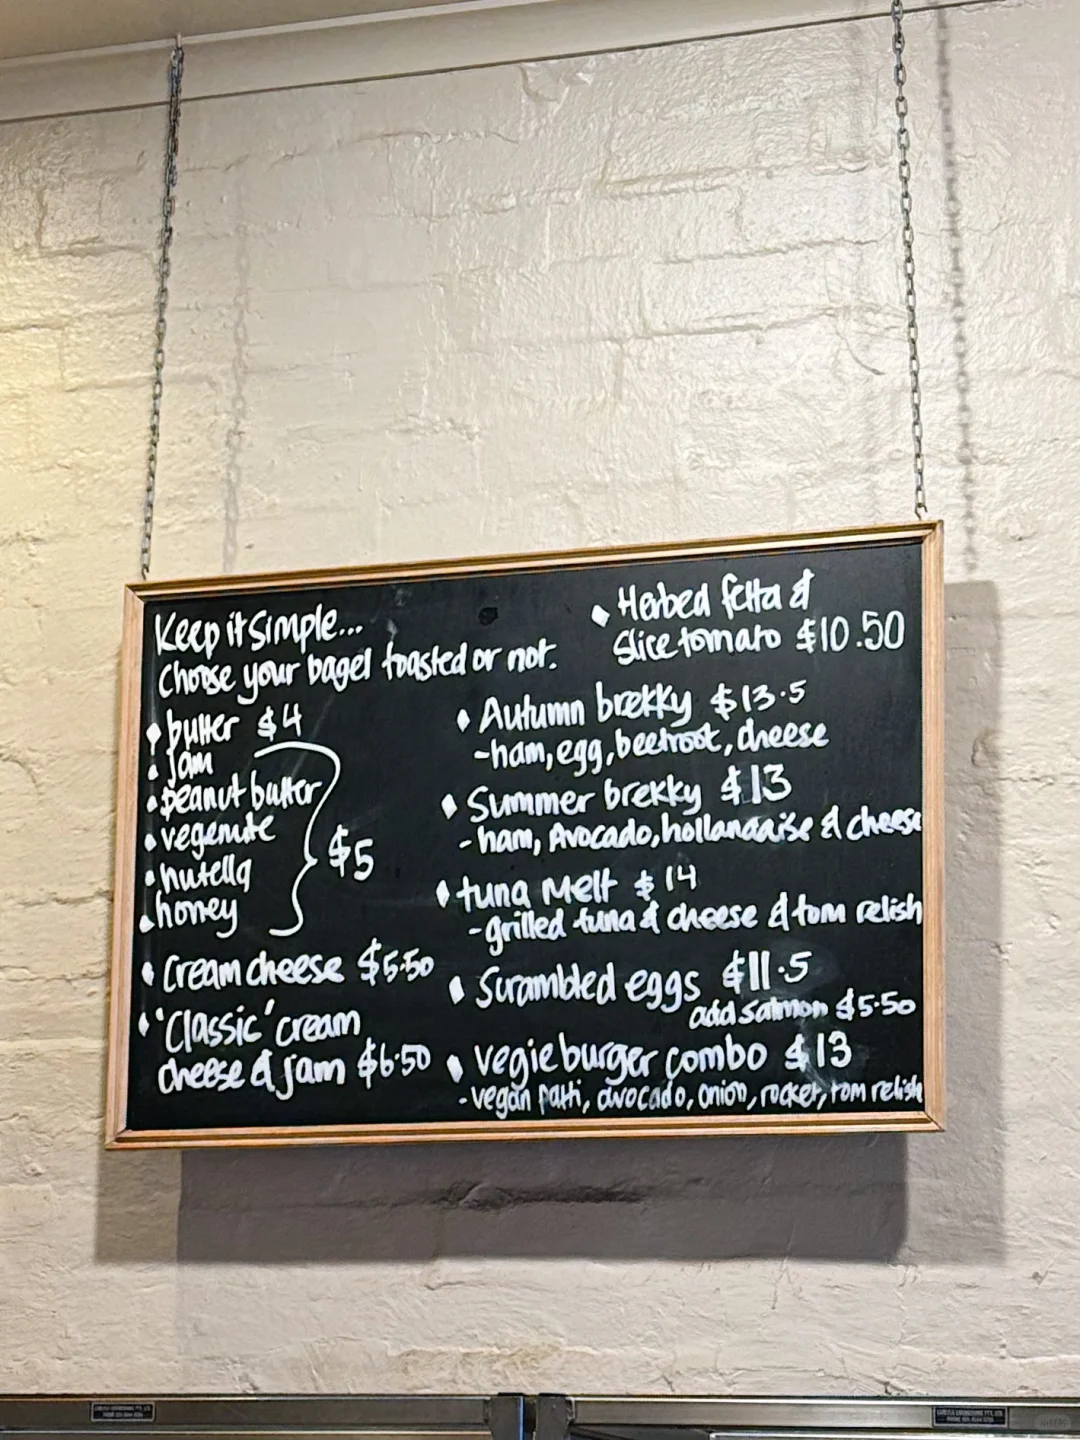 Keep it simple...
Choose your bagel toasted or not.
butter $4
jam
peanut butter
vegemite
nutella
honey
$5
Cream cheese $5.50
'Classic' cream
cheese & jam $6.50
Herbed fetta &
Slice tomato $10.50
Autumn brekky $13.5
-ham, egg, beetroot, cheese
Summer brekky $13
-ham, Avocado, hollandaise & cheese
tuna Melt $14
-grilled tuna & cheese & tom relish
Scrambled eggs $11.5
add salmon $5.50
vegie burger combo $13
-vegan patti, avocado, onion, rocket, tom relish